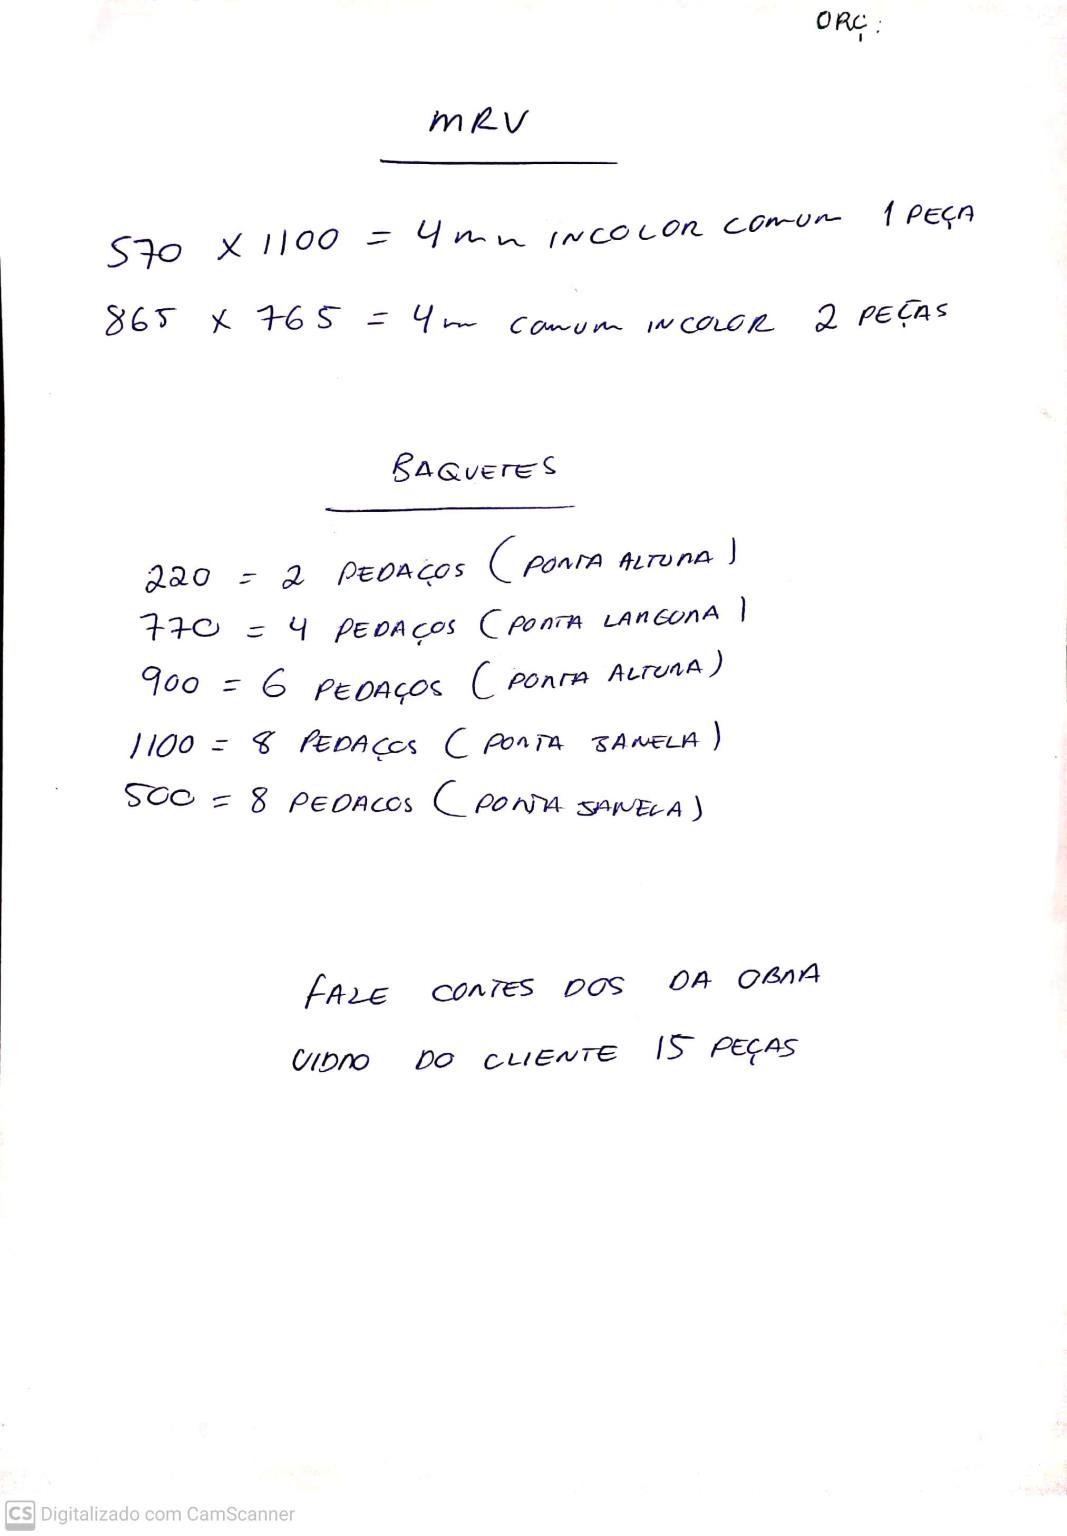 ORÇ:
MRV
570 X 1100 = 4mm INCOLOR COMUM 1 PEÇA
865 X 765 = 4m COMUM INCOLOR 2 PEÇAS
BAQUETES
220 = 2 PEDAÇOS (PORTA ALTURA)
770 = 4 PEDAÇOS (PORTA LARGURA)
900 = 6 PEDAÇOS (PORTA ALTURA)
1100 = 8 PEDAÇOS (PORTA JANELA)
500 = 8 PEDACOS (PORTA JANELA)
FAZE CORTES DOS DA OBRA
VIDRO DO CLIENTE 15 PEÇAS
CS Digitalizado com CamScanner